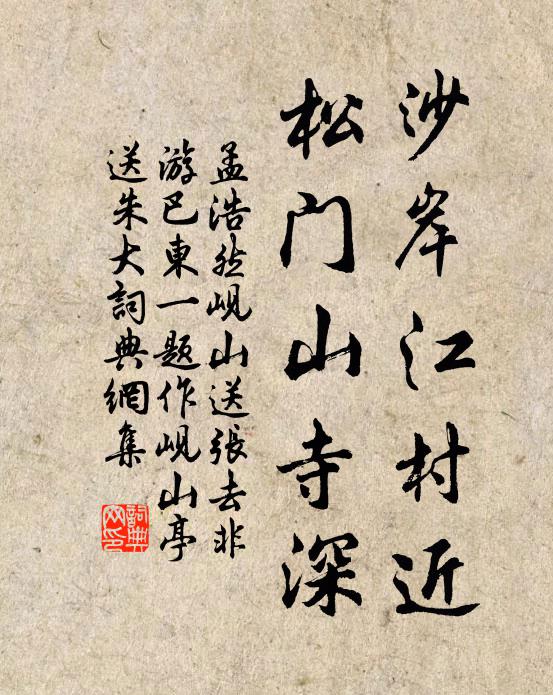 沙岸江村近
松门山寺深
孟浩然岘山送張去非
游巴東一题作岘山亭
送朱大詞典網集
詞典网印